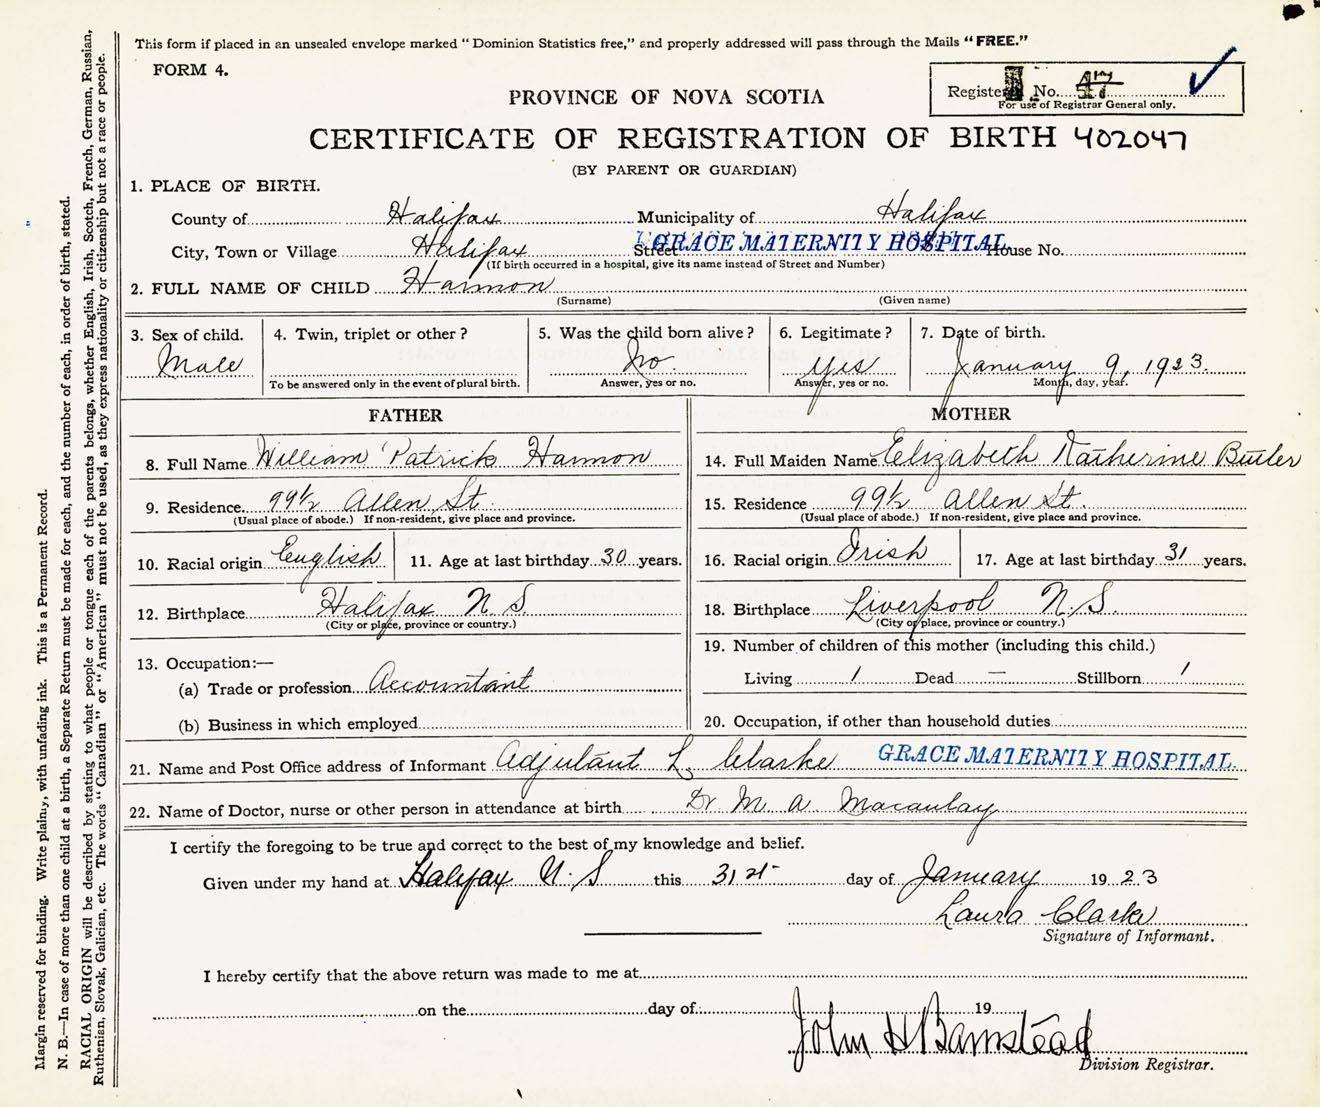 This form if placed in an unsealed envelope marked "Dominion Statistics free," and properly addressed will pass through the Mails "FREE."
FORM 4.
Registered No.
For use of Registrar General only.
PROVINCE OF NOVA SCOTIA
CERTIFICATE OF REGISTRATION OF BIRTH 402047
(BY PARENT OR GUARDIAN)
1. PLACE OF BIRTH.
County of Halifax Municipality of Halifax
City, Town or Village Halifax Street GRACE MATERNITY HOSPITAL House No.
(If birth occurred in a hospital, give its name instead of Street and Number)
2. FULL NAME OF CHILD Harmon
(Surname) (Given name)
3. Sex of child. 4. Twin, triplet or other? 5. Was the child born alive? 6. Legitimate? 7. Date of birth.
Male No. yes January 9, 1923.
To be answered only in the event of plural birth. Answer, yes or no. Answer, yes or no. Month, day, year.
FATHER MOTHER
8. Full Name William Patrick Harmon 14. Full Maiden Name Elizabeth Katherine Butler
9. Residence 99½ Allen St 15. Residence 99½ Allen St.
(Usual place of abode.) If non-resident, give place and province. (Usual place of abode.) If non-resident, give place and province.
10. Racial origin English 11. Age at last birthday 30 years. 16. Racial origin Irish 17. Age at last birthday 31 years.
12. Birthplace Halifax N S 18. Birthplace Liverpool N.S.
(City or place, province or country.) (City or place, province or country.)
13. Occupation:— 19. Number of children of this mother (including this child.)
(a) Trade or profession Accountant Living 1 Dead — Stillborn 1
(b) Business in which employed 20. Occupation, if other than household duties
21. Name and Post Office address of Informant Adjutant L. Clarke GRACE MATERNITY HOSPITAL.
22. Name of Doctor, nurse or other person in attendance at birth Dr M A Macaulay
I certify the foregoing to be true and correct to the best of my knowledge and belief.
Given under my hand at Halifax N.S this 31st day of January 1923
Laura Clarke
Signature of Informant.
I hereby certify that the above return was made to me at
on the day of 19
John H Barnstead
Division Registrar.
Margin reserved for binding. Write plainly, with unfading ink. This is a Permanent Record.
N. B.—In case of more than one child at a birth, a Separate Return must be made for each, and the number of each, in order of birth, stated.
RACIAL ORIGIN will be described by stating to what people or tongue each of the parents belongs, whether English, Irish, Scotch, French, German, Russian,
Ruthenian, Slovak, Galician, etc. The words "Canadian" or "American" must not be used, as they express nationality or citizenship but not a race or people.